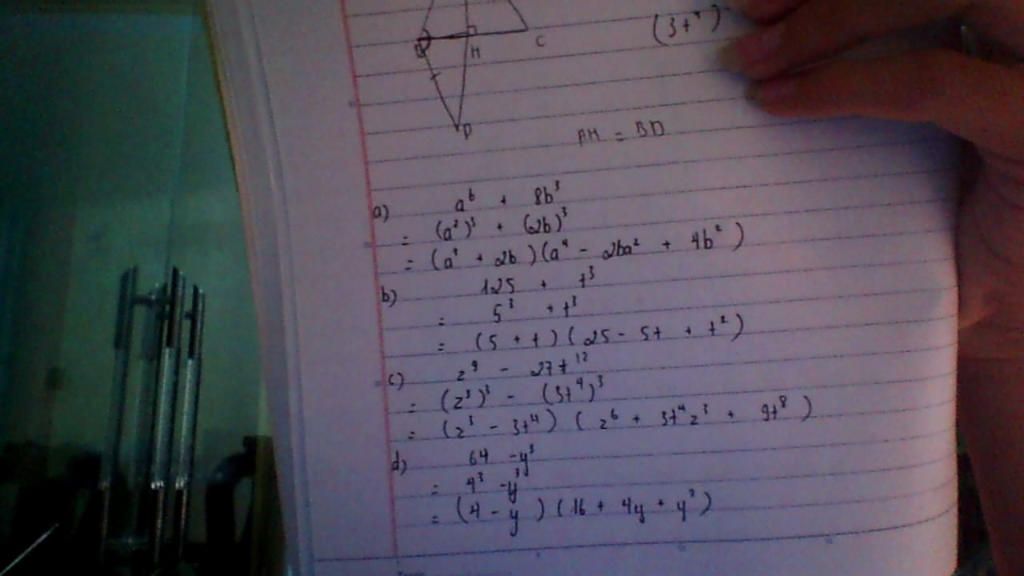 (3t⁴)
B
H
C
D
AH = BD
a) a⁶ + 8b³
= (a²)³ + (2b)³
= (a² + 2b)(a⁴ - 2ba² + 4b²)
b) 125 + t³
= 5³ + t³
= (5 + t)(25 - 5t + t²)
c) z⁹ - 27t¹²
= (z³)³ - (3t⁴)³
= (z³ - 3t⁴) (z⁶ + 3t⁴z³ + 9t⁸)
d) 64 - y³
= 4³ - y³
= (4 - y)(16 + 4y + y²)